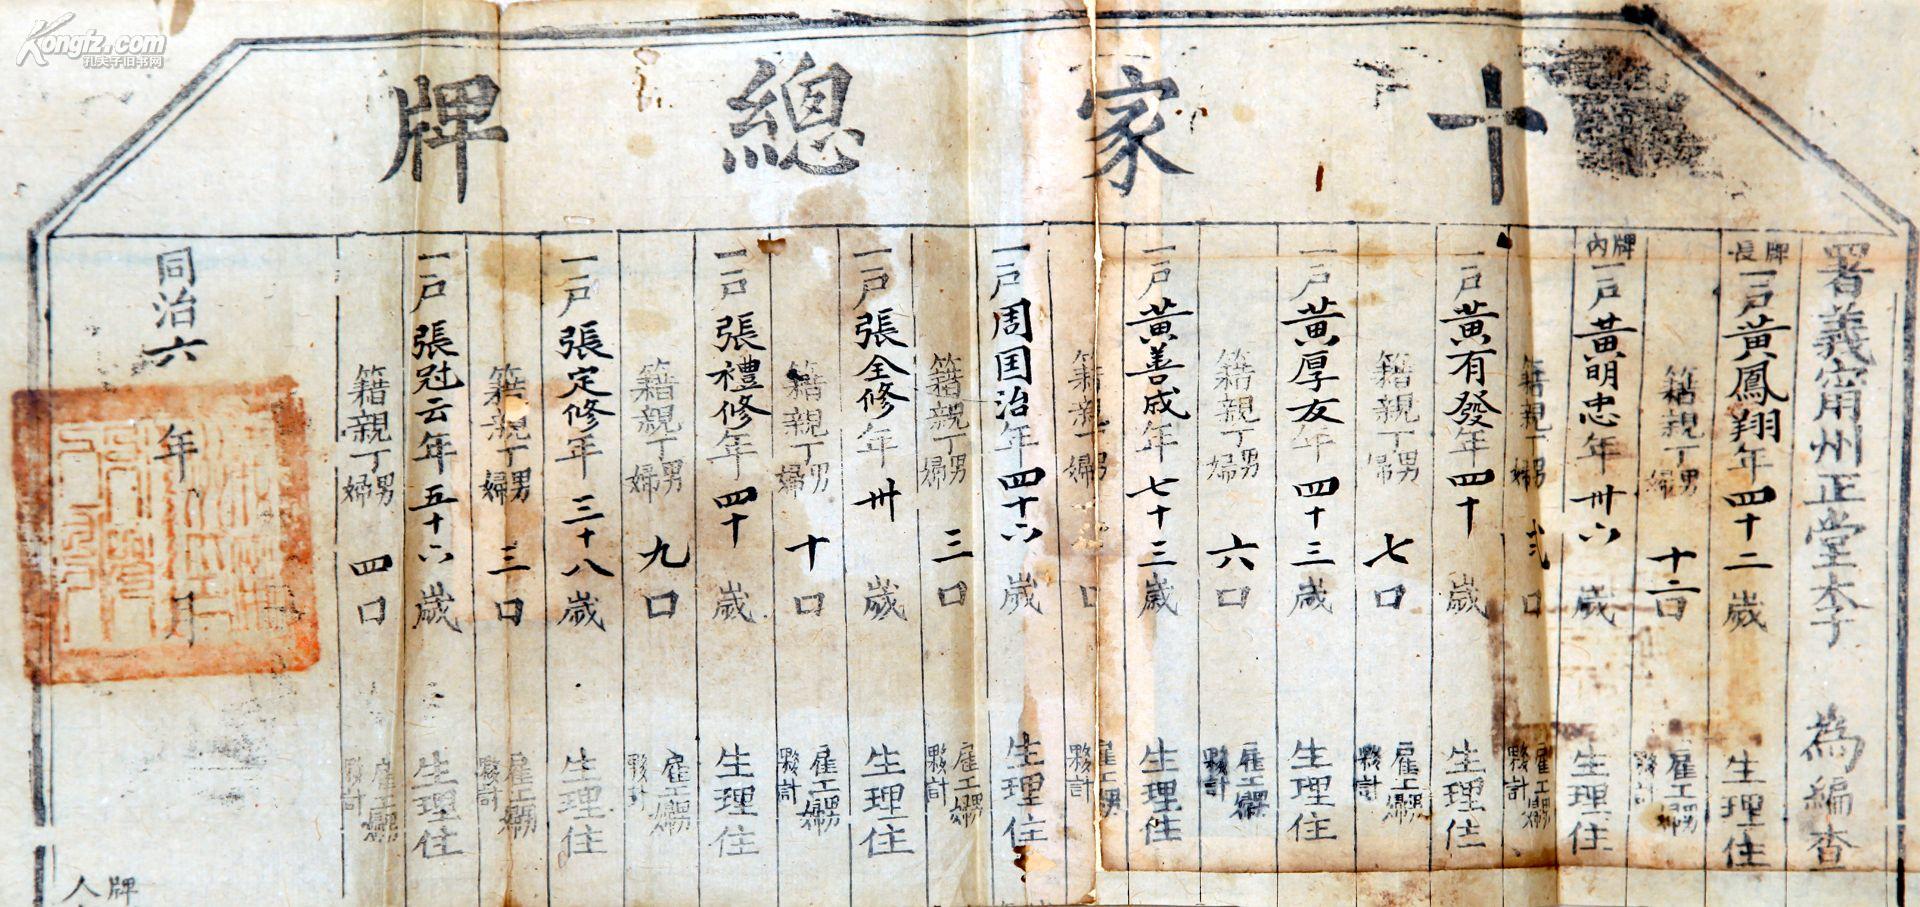 十家總牌
署義寧州正堂李 為編查
牌長 一戶黃鳳翔年四十二歲 生理住
籍親丁男婦 十二口 雇工男婦夥計
牌內 一戶黃明忠年卅六歲 生理住
籍親丁男婦 弍口 雇工男婦夥計
一戶黃有發年四十歲 生理住
籍親丁男婦 七口 雇工男婦夥計
一戶黃厚友年四十三歲 生理住
籍親丁男婦 六口 雇工男婦夥計
一戶黃善成年七十三歲 生理住
籍親丁男婦 口 雇工男婦夥計
一戶周国治年四十六歲 生理住
籍親丁男婦 三口 雇工男婦夥計
一戶張全修年卅歲 生理住
籍親丁男婦 十口 雇工男婦夥計
一戶張禮修年四十歲 生理住
籍親丁男婦 九口 雇工男婦夥計
一戶張定修年三十八歲 生理住
籍親丁男婦 三口 雇工男婦夥計
一戶張冠云年五十六歲 生理住
籍親丁男婦 四口 雇工男婦夥計
同治六年 月
牌人
Kongfz.com
孔夫子旧书网